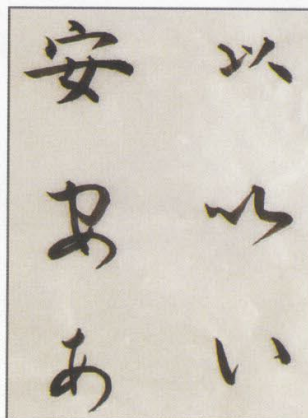 以以い
安安あ